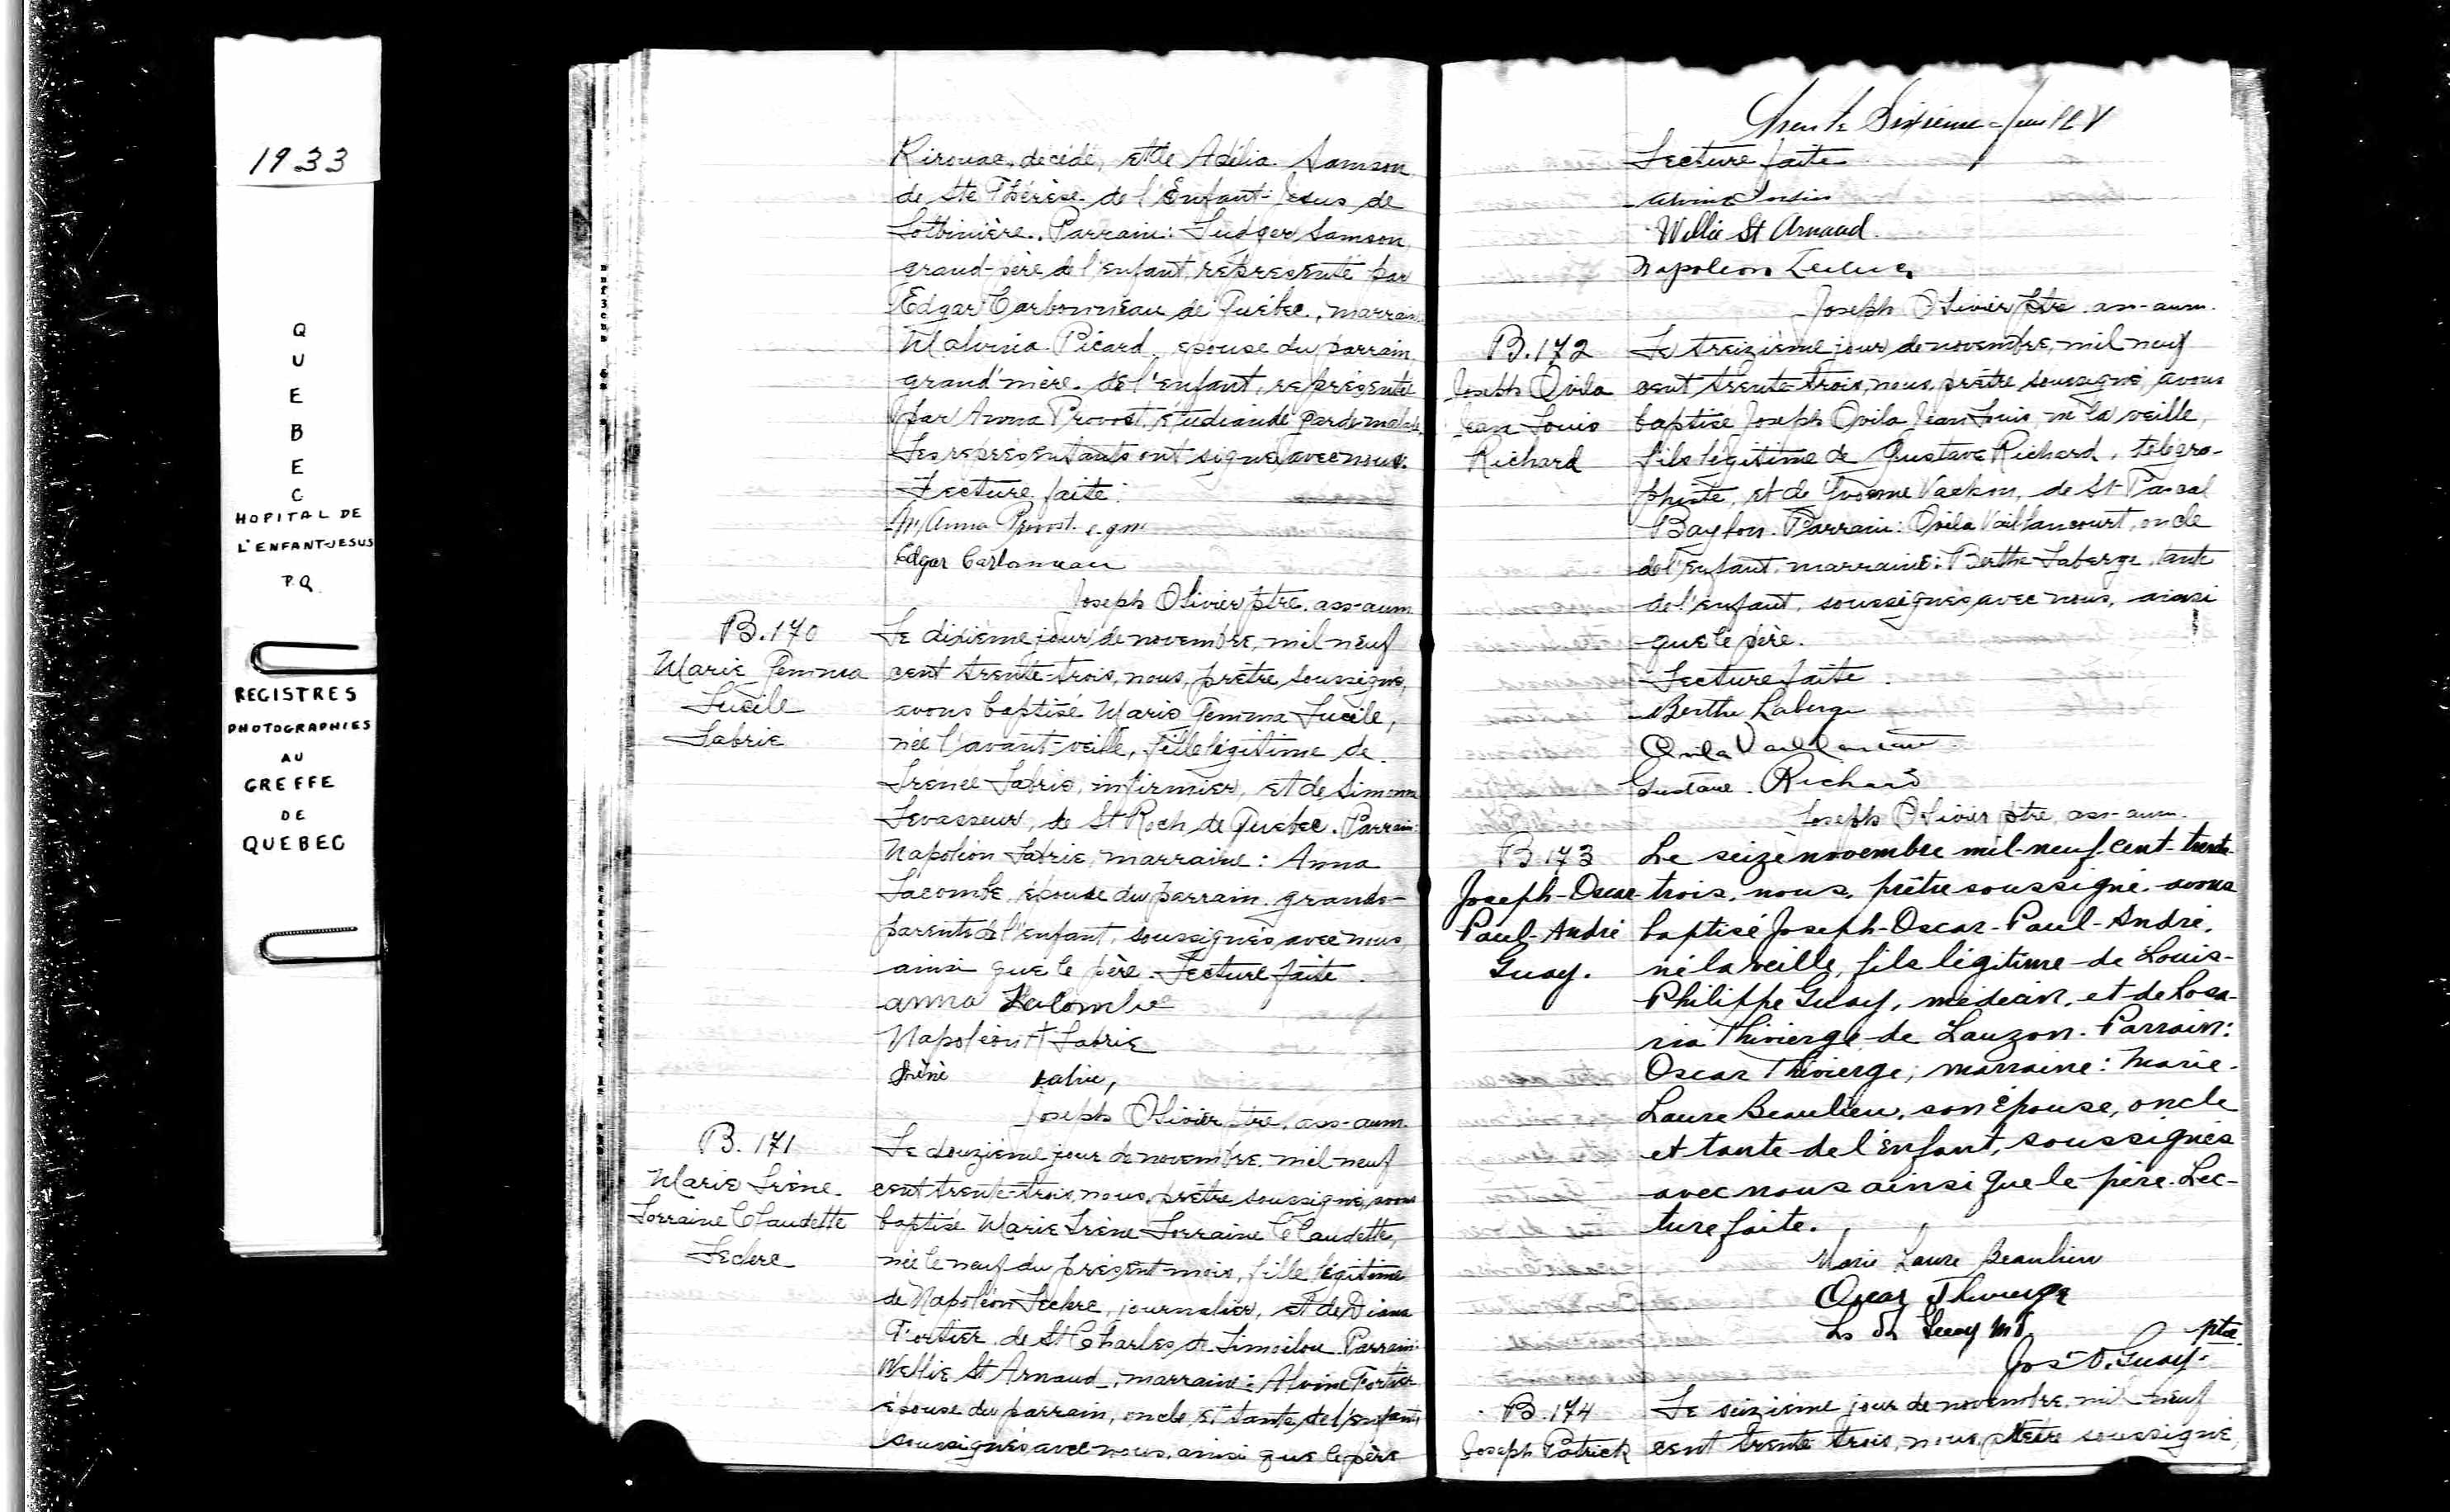 1933
Q
U
E
B
E
C
HOPITAL DE
L'ENFANT-JESUS
P.Q.
REGISTRES
PHOTOGRAPHIES
AU
GREFFE
DE
QUEBEC
Kirouac, décédé, et de Adélia Samson
de Ste Thérèse de l'Enfant-Jésus de
Lotbinière. Parrain: Ludger Samson
grand-père de l'enfant, représenté par
Edgar Carbonneau de Québec, marraine
Malvina Picard, épouse du parrain
grand'mère de l'enfant, représentée
par Anna Provost, étudiante garde-malade.
Les représentants ont signé avec nous.
Lecture faite.
M. Anna Provost. e.g.m.
Edgar Carbonneau
Joseph Olivier ptre. ass-aum
B.170
Marie Gemma
Lucile
Labrie
Le dixième jour de novembre, mil neuf
cent trente-trois, nous, prêtre soussigné,
avons baptisé Marie Gemma Lucile,
née l'avant-veille, fille légitime de
Irenée Labrie, infirmier, et de Simonne
Levasseur, de St Roch de Québec. Parrain:
Napoléon Labrie, marraine: Anna
Lacombe, épouse du parrain, grands-
parents de l'enfant, soussignés avec nous,
ainsi que le père. Lecture faite.
Anna Lacombe
Napoléon + Labrie
Iréné Labrie,
Joseph Olivier ptre, ass-aum
B. 171
Marie Irène
Lorraine Claudette
Leclerc
Le douzième jour de novembre, mil neuf
cent trente-trois, nous, prêtre soussigné, avons
baptisé Marie Irène Lorraine Claudette,
née le neuf du présent mois, fille légitime
de Napoléon Leclerc, journalier, et de Diana
Fortier de St Charles de Limoilou. Parrain:
Wellie St Arnaud, marraine: Alvine Fortier
épouse du parrain, oncle et tante de l'enfant,
soussignés avec nous, ainsi que le père
Trente Sixième feuillet
Lecture faite
Alvine Fortier
Willie St Arnaud
Napoleon Leclerc
Joseph Olivier ptre ass-aum.
B.172
Joseph Ovila
Jean Louis
Richard
Le treizième jour de novembre, mil neuf
cent trente-trois, nous, prêtre soussigné, avons
baptisé Joseph Ovila Jean Louis, né la veille,
fils légitime de Gustave Richard, télégra-
phiste, et de Yvonne Vachon, de St Pascal
Baylon. Parrain: Ovila Vaillancourt, oncle
de l'enfant, marraine: Berthe Laberge, tante
de l'enfant, soussignés avec nous, ainsi
que le père.
Lecture faite.
Berthe Laberge
Ovila Vaillancourt
Gustave Richard
Joseph Olivier ptre, ass-aum.
B.173
Joseph-Oscar
Paul-André
Guay.
Le seize novembre mil-neuf-cent-trente-
trois, nous, prêtre soussigné avons
baptisé Joseph-Oscar-Paul-André,
né la veille, fils légitime de Louis-
Philippe Guay, médecin, et de Rosa-
ria Thivierge de Lauzon. Parrain:
Oscar Thivierge, marraine: Marie-
Laure Beaulieu, son épouse, oncle
et tante de l'enfant, soussignés
avec nous ainsi que le père. Lec-
ture faite.
Marie Laure Beaulieu
Oscar Thivierge
Guay M.D.
ptre
Jos Guay.
B.174
Joseph Patrick
Le seizième jour de novembre, mil neuf
cent trente trois, nous, prêtre soussigné,